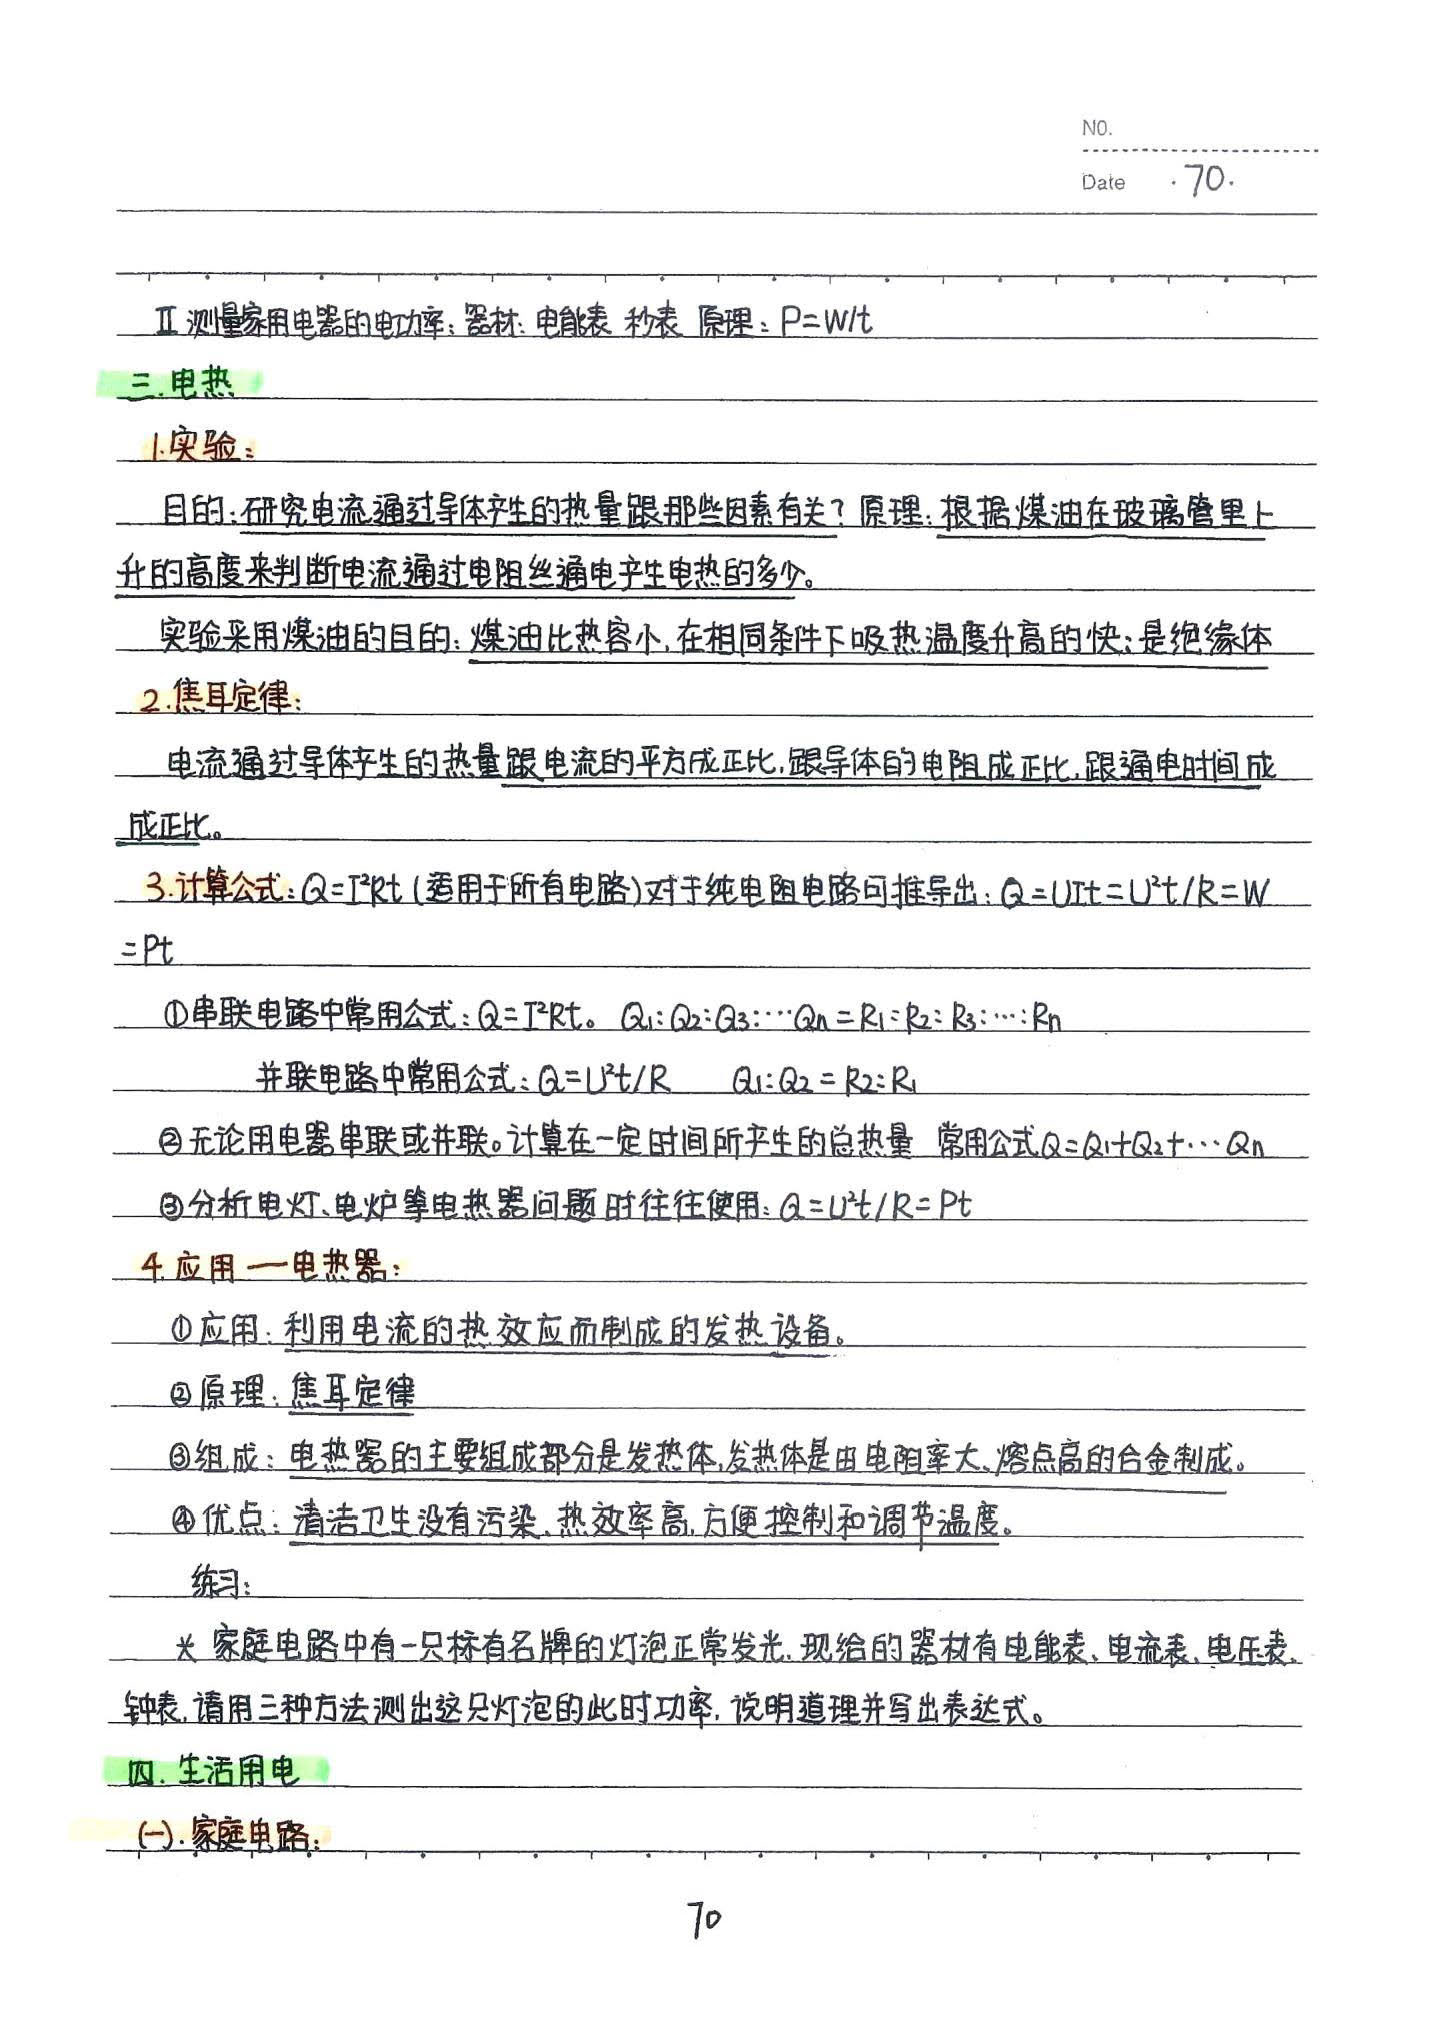 NO.
Date ·70·
Ⅱ 测量家用电器的电功率：器材：电能表 秒表 原理：P=W/t
三.电热
1.实验：
目的：研究电流通过导体产生的热量跟那些因素有关？原理：根据煤油在玻璃管里上
升的高度来判断电流通过电阻丝通电产生电热的多少。
实验采用煤油的目的：煤油比热容小，在相同条件下吸热温度升高的快；是绝缘体
2.焦耳定律：
电流通过导体产生的热量跟电流的平方成正比，跟导体的电阻成正比，跟通电时间成
成正比。
3.计算公式：Q=I²Rt（适用于所有电路）对于纯电阻电路可推导出：Q=UIt=U²t/R=W
=Pt
①串联电路中常用公式：Q=I²Rt。 Q₁:Q₂:Q₃:…Qn=R₁:R₂:R₃:…:Rn
并联电路中常用公式：Q=U²t/R Q₁:Q₂=R₂:R₁
②无论用电器串联或并联。计算在一定时间所产生的总热量 常用公式Q=Q₁+Q₂+…Qn
③分析电灯、电炉等电热器问题时往往使用：Q=U²t/R=Pt
4.应用—电热器：
①应用：利用电流的热效应而制成的发热设备。
②原理：焦耳定律
③组成：电热器的主要组成部分是发热体，发热体是由电阻率大、熔点高的合金制成。
④优点：清洁卫生没有污染、热效率高、方便控制和调节温度。
练习：
* 家庭电路中有一只标有名牌的灯泡正常发光，现给的器材有电能表、电流表、电压表、
钟表，请用三种方法测出这只灯泡的此时功率，说明道理并写出表达式。
四.生活用电
(一).家庭电路：
70